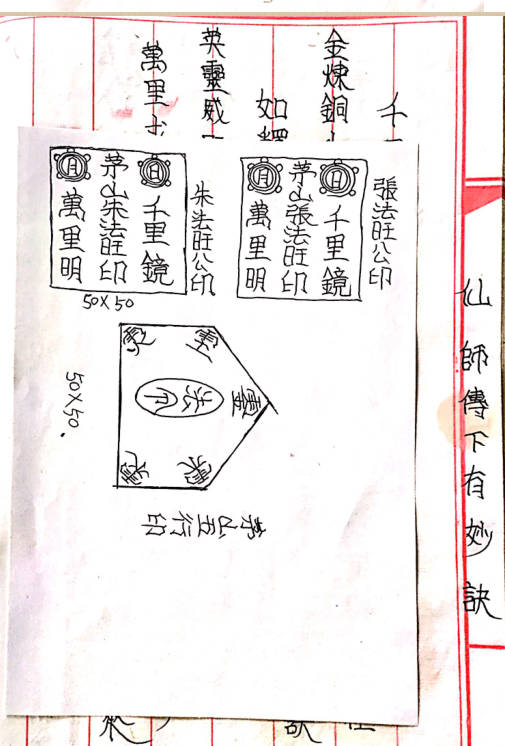 仙師傳下有妙訣
千
金煉銅
如
英靈威
萬里
張法旺公印
日千里鏡
茅山張法旺印
月萬里明
朱法旺公印
日千里鏡
茅山朱法旺印
月萬里明
50X50
50X50.
法
茅山五行印